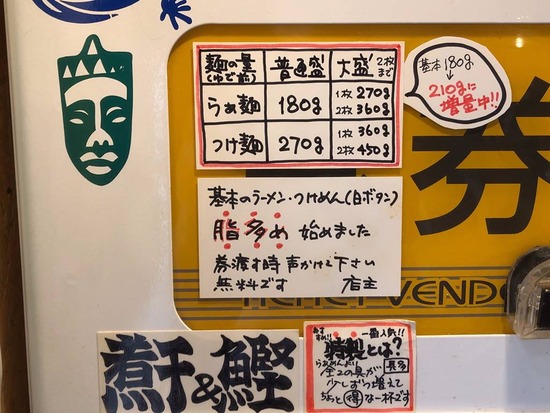 麺の量 普通盛 大盛 2枚まで
(ゆで前)
らぁ麺 180g 1枚 270g
2枚 360g
つけ麺 270g 1枚 360g
2枚 450g
基本180g
↓
210gに
増量中!!
券
基本のラーメン・つけめん(白ボタン)
脂多め 始めました
券渡す時声かけて下さい
無料です 店主
TICKET VENDO
煮干&鰹
おすすめ!! 一番人気!!
特製とは?
らぁめんだけ 長多
全ての具が
少しずつ増えて
ちょっと得な一杯です